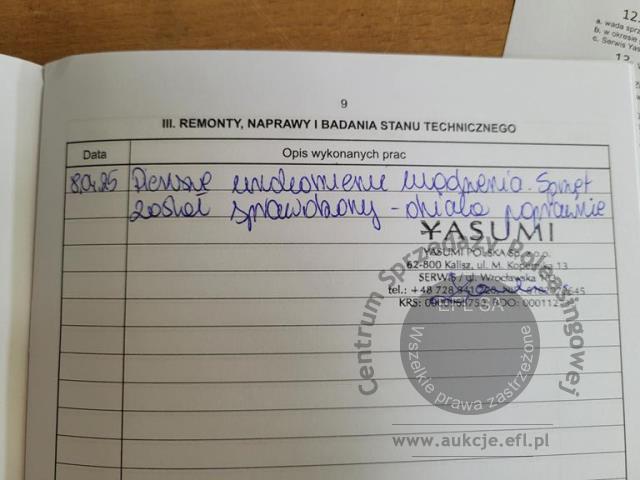 12.
a. wada sprz
b. w okresie
c. Serwis Yas
9
III. REMONTY, NAPRAWY I BADANIA STANU TECHNICZNEGO
Data Opis wykonanych prac
Pierwsze uruchomienie urządzenia. Sprzęt
został sprawdzony - działa poprawnie
YASUMI
YASUMI POLSKA Sp. z o.o.
62-800 Kalisz, ul. M. Kopernika 13
SERWIS / ul. Wrocławska
tel.: + 48 728
KRS:
Centrum Sprzedaży Poleasingowej
EFL SA
Wszelkie prawa zastrzeżone
www.aukcje.efl.pl